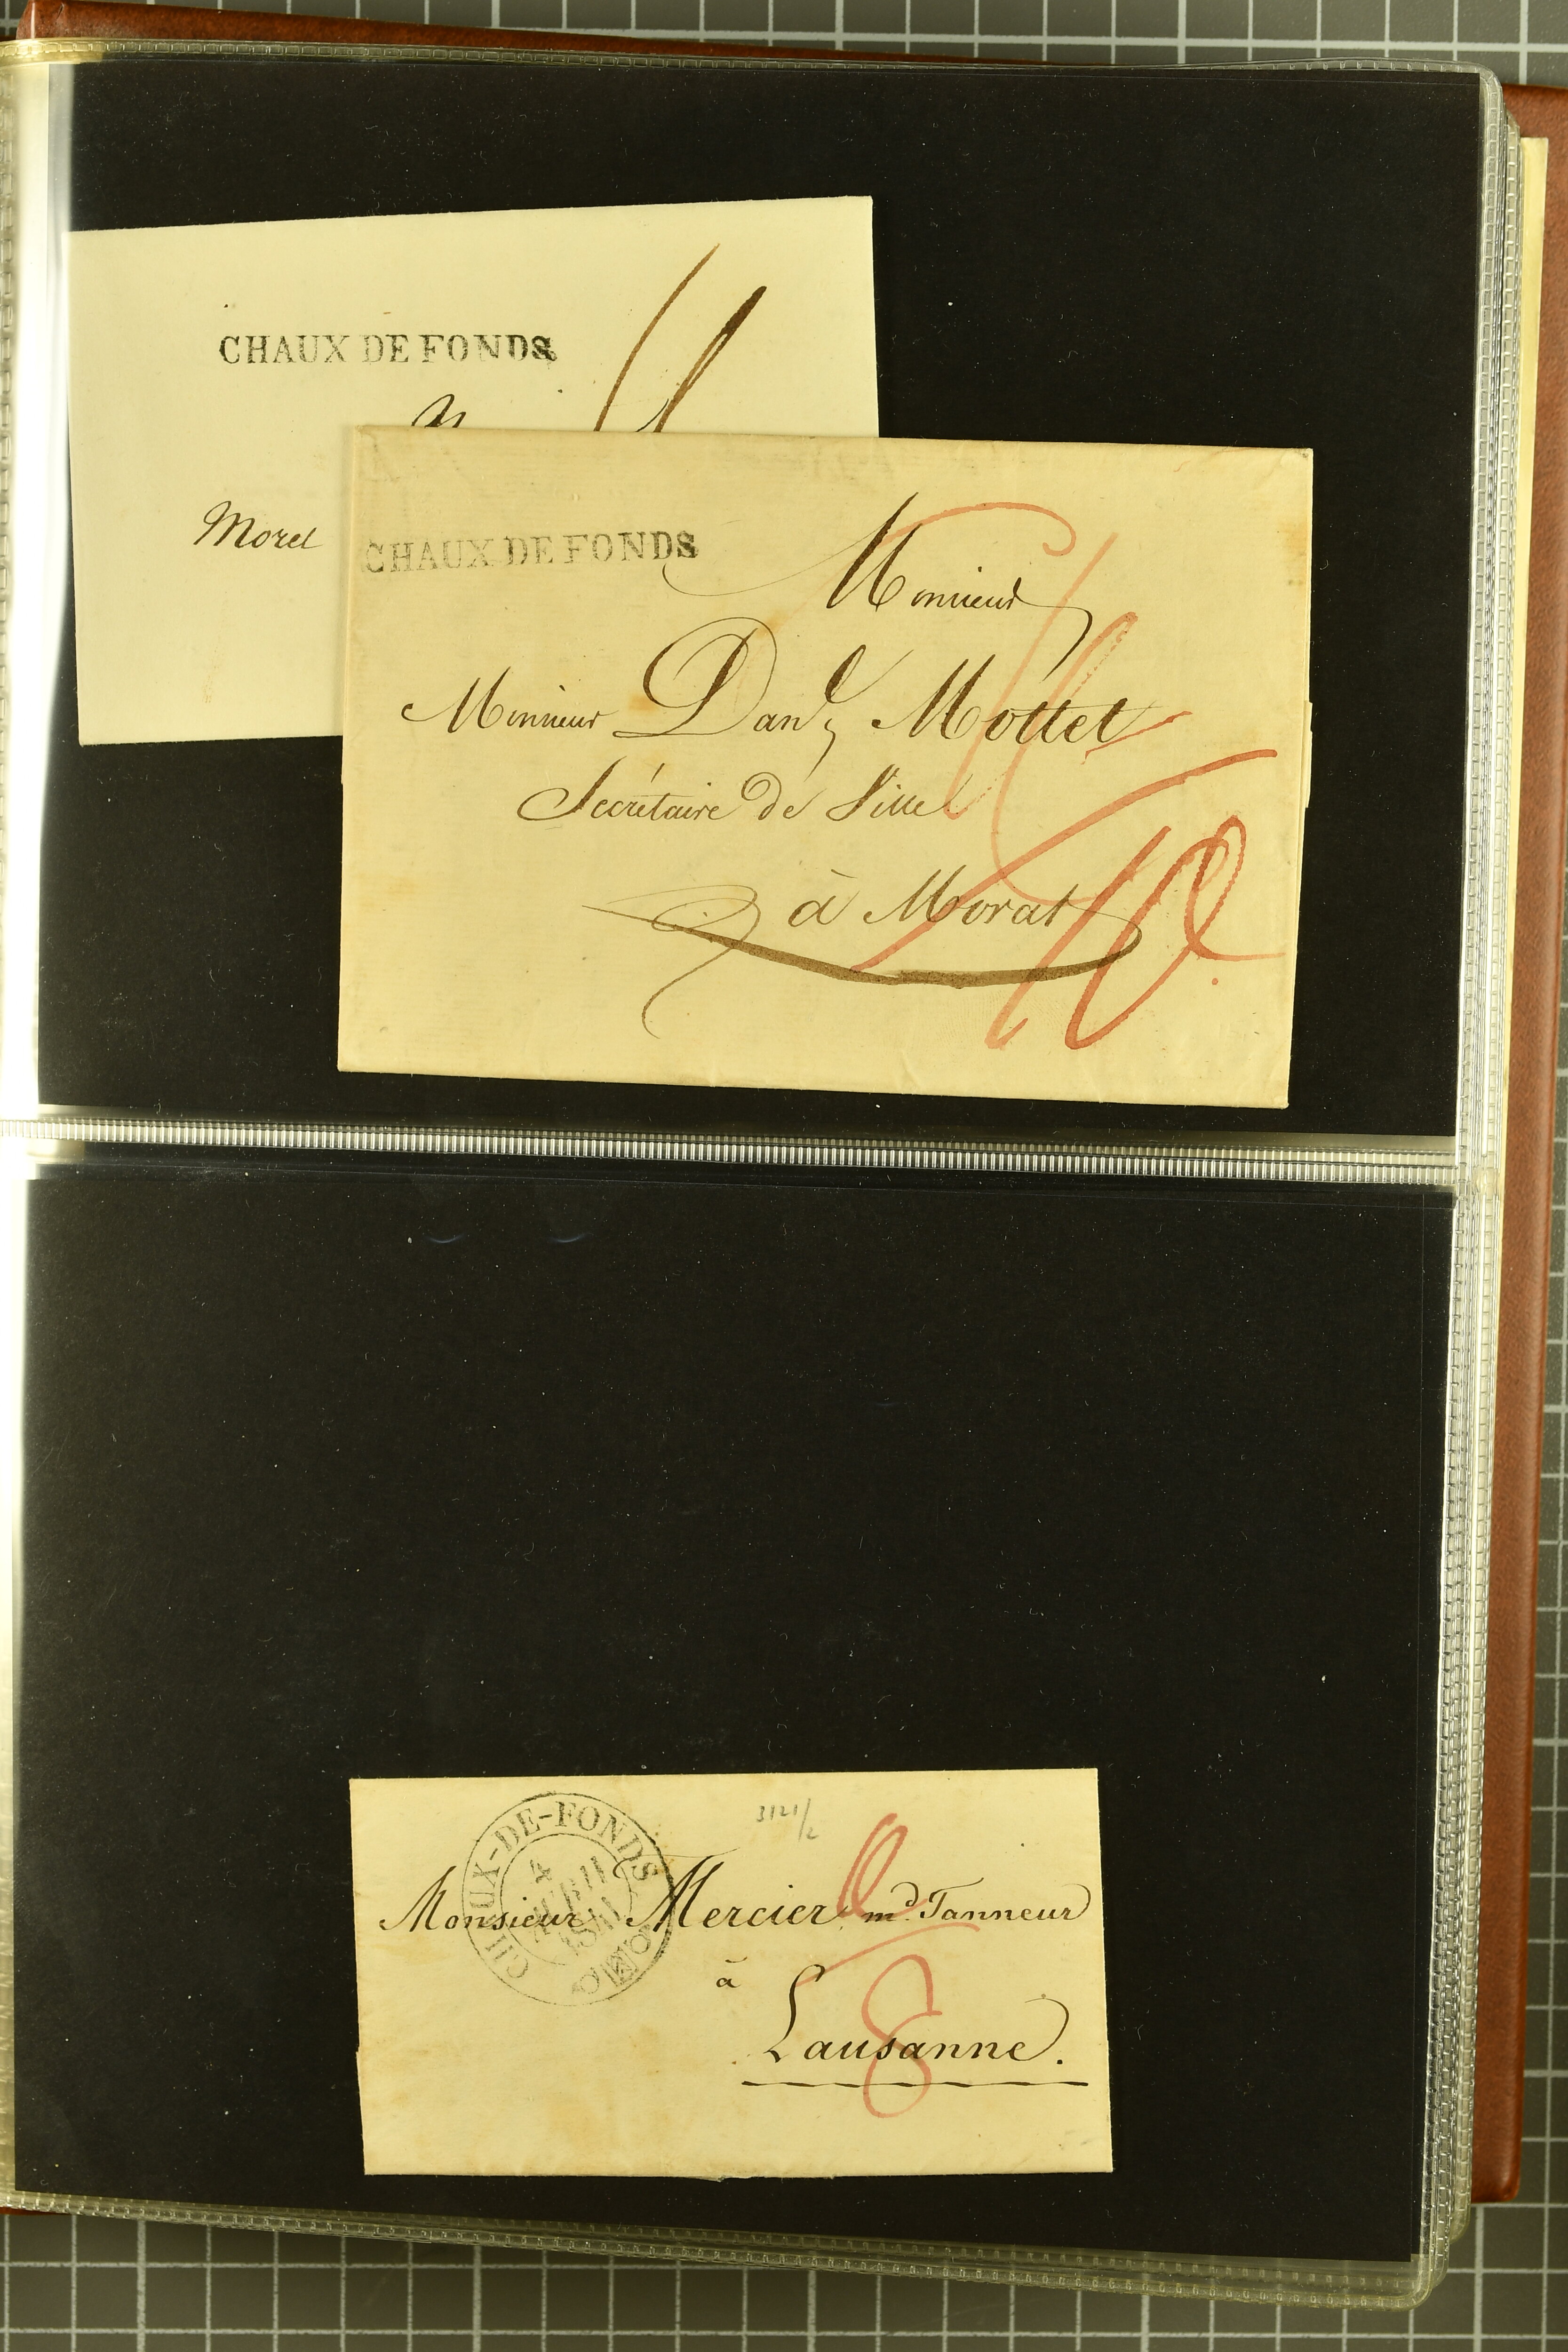 CHAUX DE FONDS
Morel
CHAUX DE FONDS
Monsieur
Monsieur Danl Mottet
Secrétaire de Ville
à Morat
10
CHAUX-DE-FONDS
4
3121/2
Monsieur Mercier md. Tanneur
à
8
Lausanne.